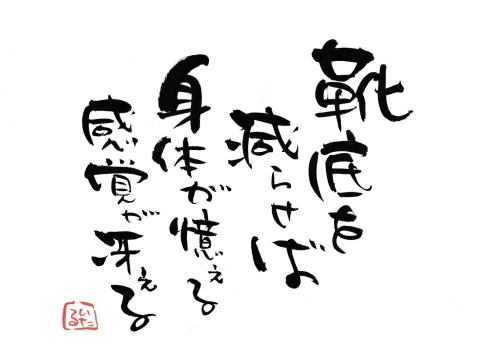 靴底を
減らせば
身体が憶える
感覚が冴える